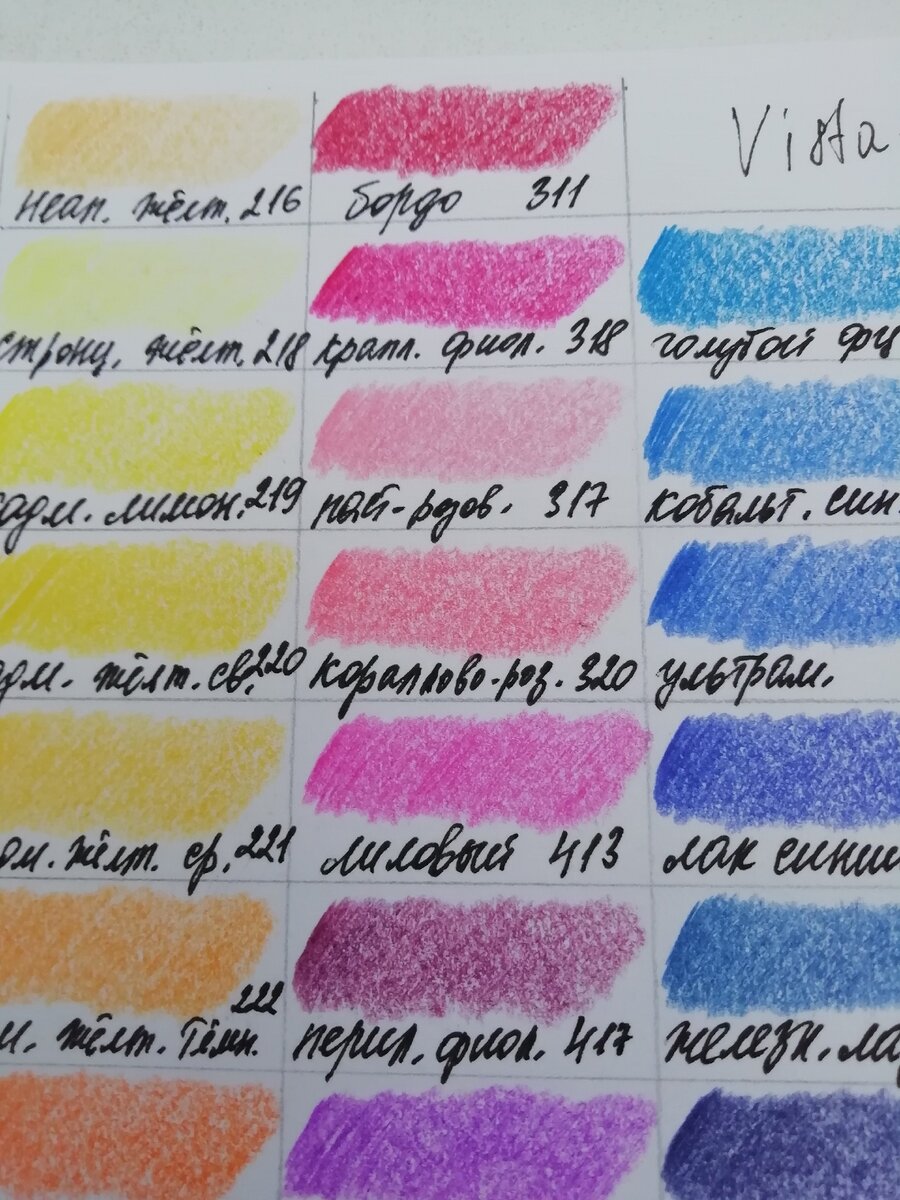 неап. жёлт. 216
бордо 311
Vista
стронц. жёлт. 218
крапл. фиол. 318
голубой фц
кадм. лимон. 219
паст-розов. 317
кобальт. син.
адм. жёлт. св. 220
кораллово-роз. 320
ультрам.
ом. жёлт. ср. 221
лиловый 413
лак синий
м. жёлт. тёмн. 222
перил. фиол. 417
железн. ла